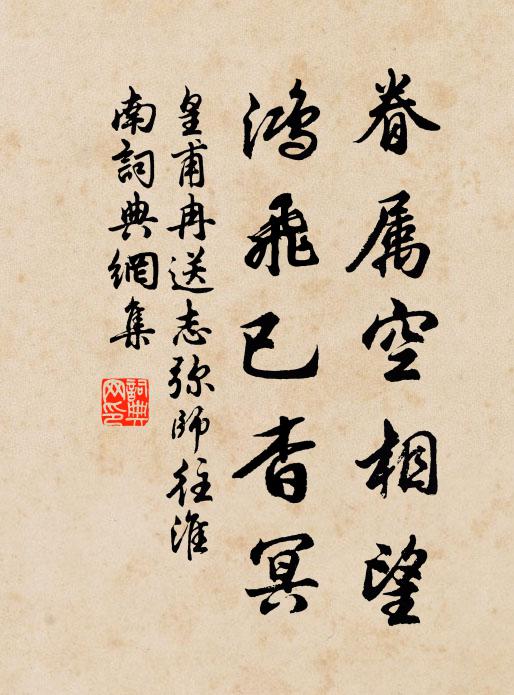 眷属空相望
鸿飛已杳冥
皇甫冉送志弥師往淮
南詞典網集
詞典
网印